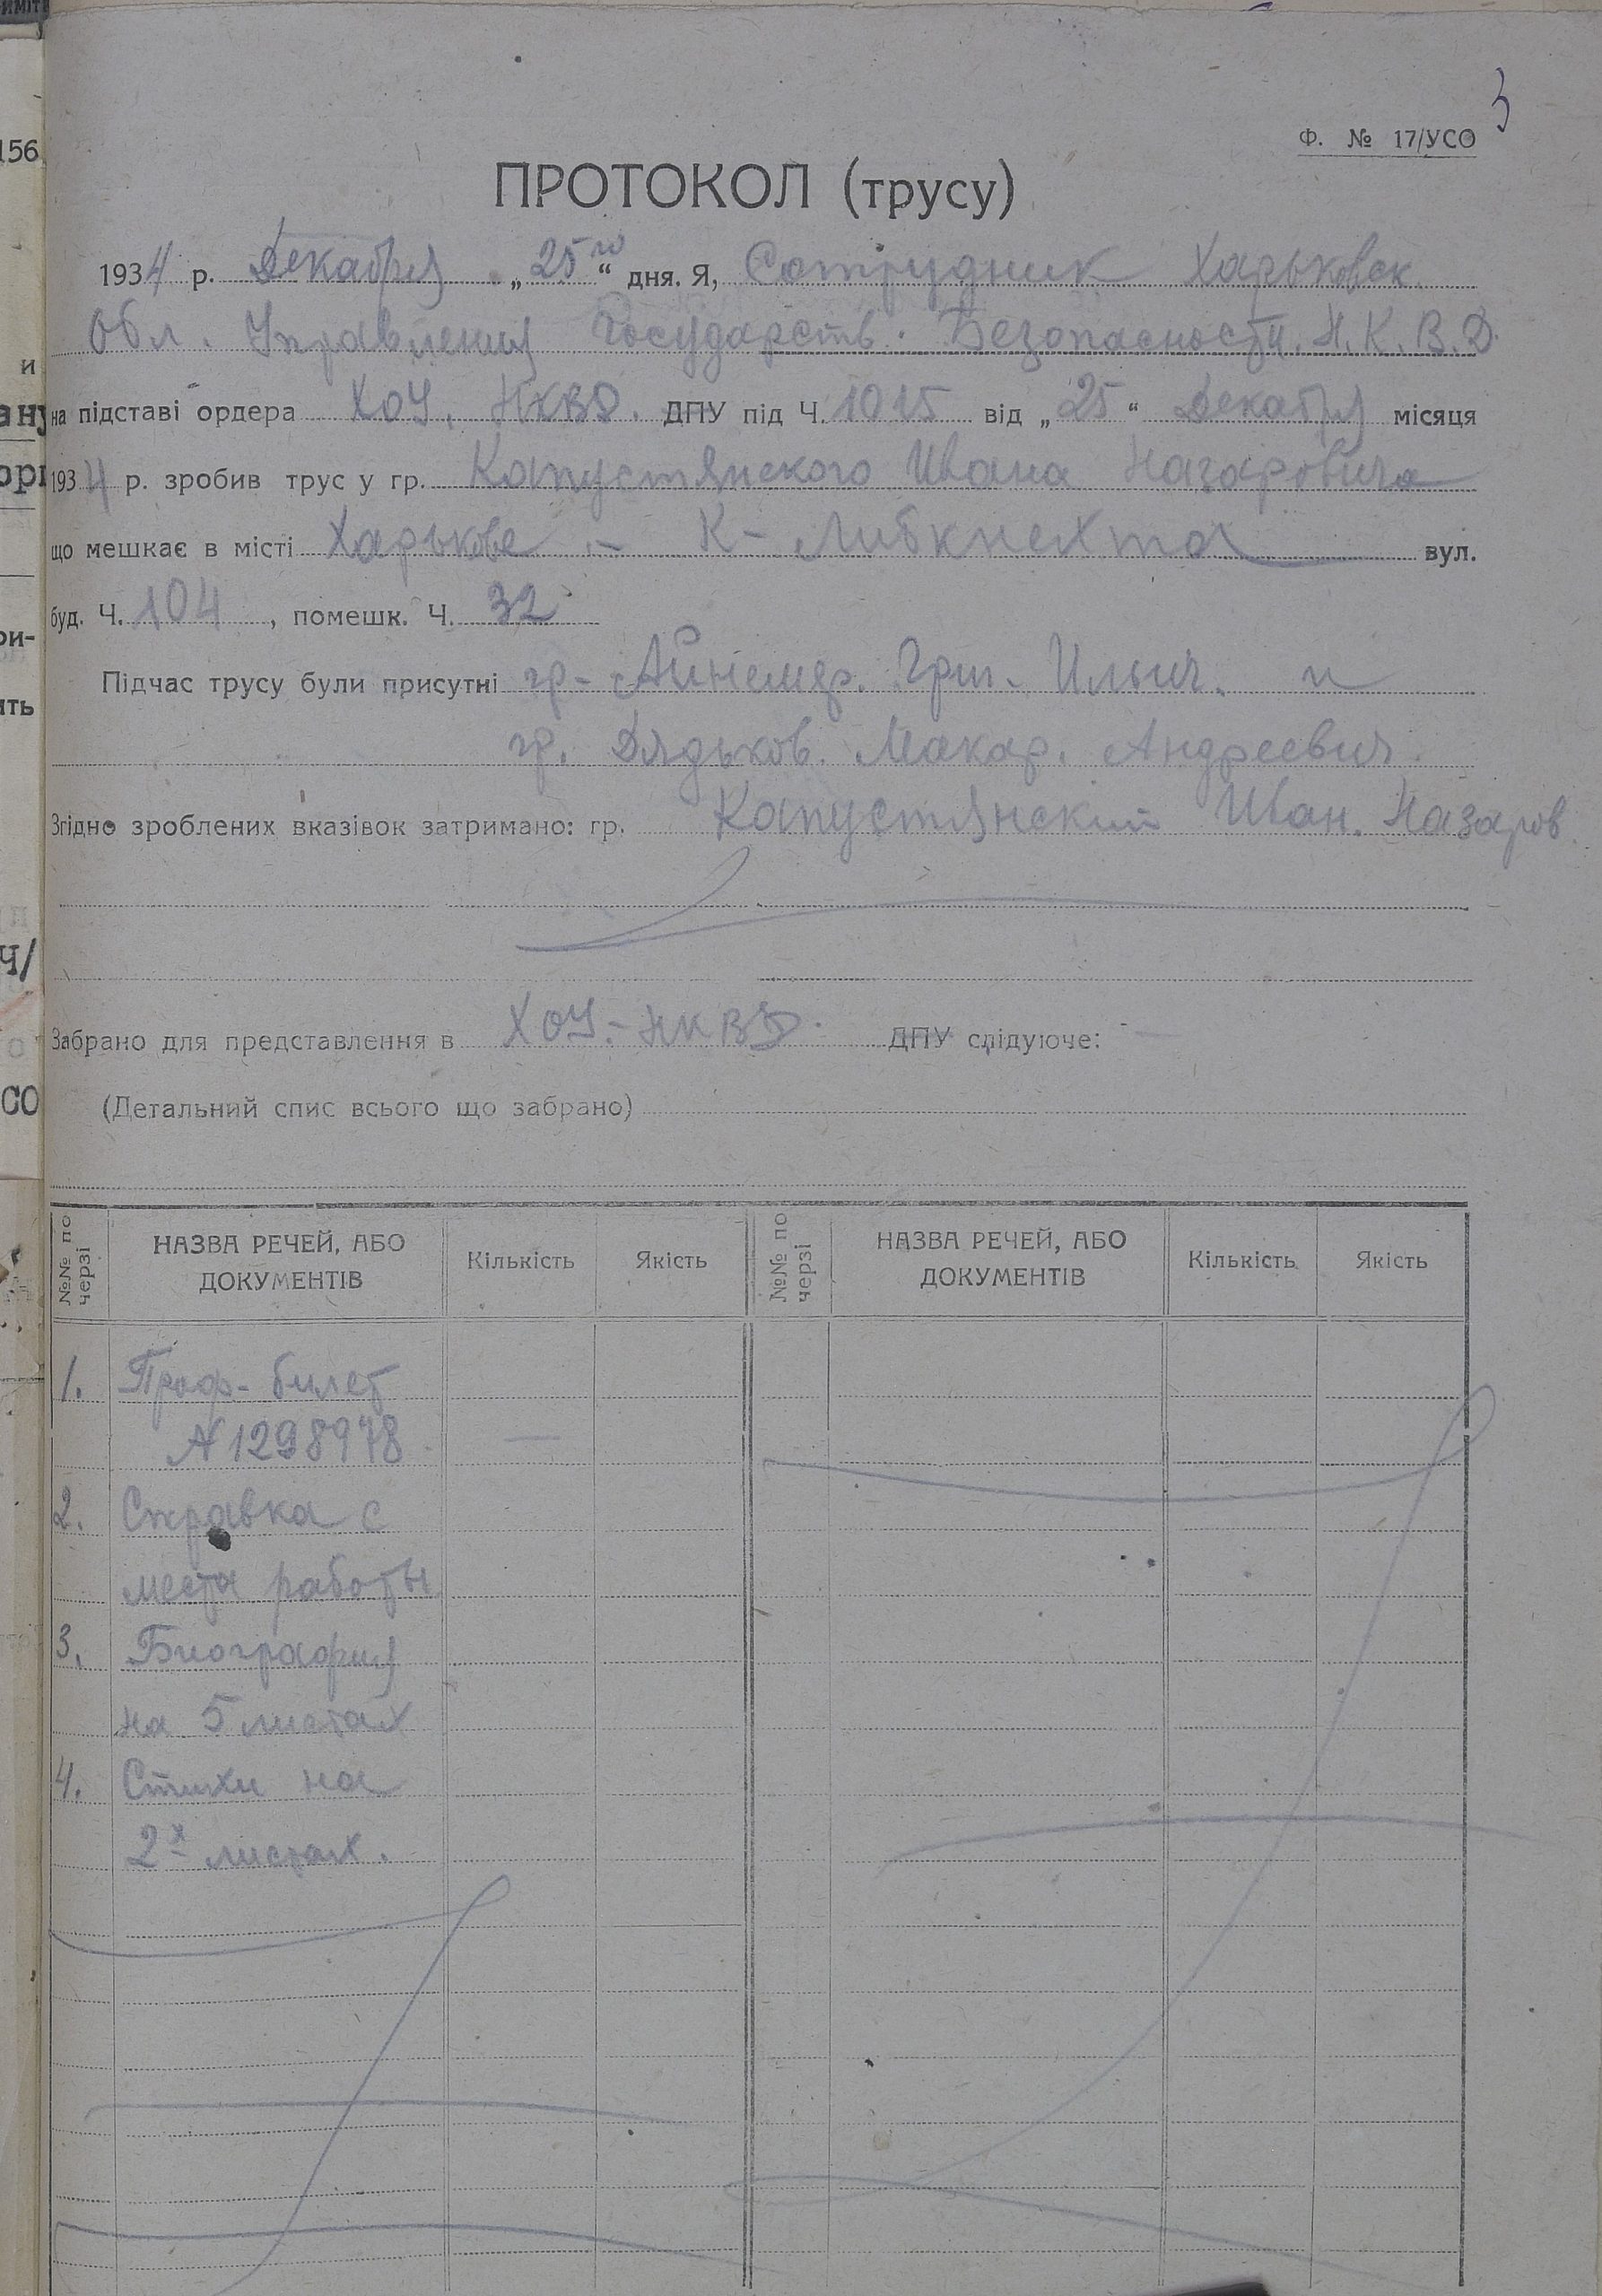 3
Ф. № 17/УСО
ПРОТОКОЛ (трусу)
1934 р. Декабря „25го“ дня. Я, Сотрудник Харьковск.
Обл. Управления Государств. Безопасности. Н.К.В.Д.
на підставі ордера ХОУ. НКВД. ДПУ під Ч. 1015 від „25“ Декабря місяця
1934 р. зробив трус у гр. Капустянского Ивана Назаровича
що мешкає в місті Харькове - К-Либкнехта вул.
буд. Ч. 104, помешк. Ч. 32
Підчас трусу були присутні гр- Григ. Ильич. и
гр. Дядьков. Макар. Андреевич.
Згідно зроблених вказівок затримано: гр. Капустянский Иван. Назаров.
Забрано для представлення в ХОУ-НКВД. ДПУ слідуюче:
(Детальний спис всього що забрано)
№№ по черзі НАЗВА РЕЧЕЙ, АБО ДОКУМЕНТІВ Кількість Якість №№ по черзі НАЗВА РЕЧЕЙ, АБО ДОКУМЕНТІВ Кількість Якість
1. Проф-билет
№1298978. —
2. Справка с
места работы
3. Биография
на 5 листах
4. Стихи на
2х листах.
156
и
ри-
ить
Ч/
СО